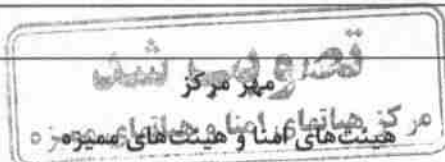 تصویب شد
مهر مرکز
مرکز هیاتهای امنا و هیاتهای ممیزه
هیئت‌های امنا و هیئت‌های ممیزه